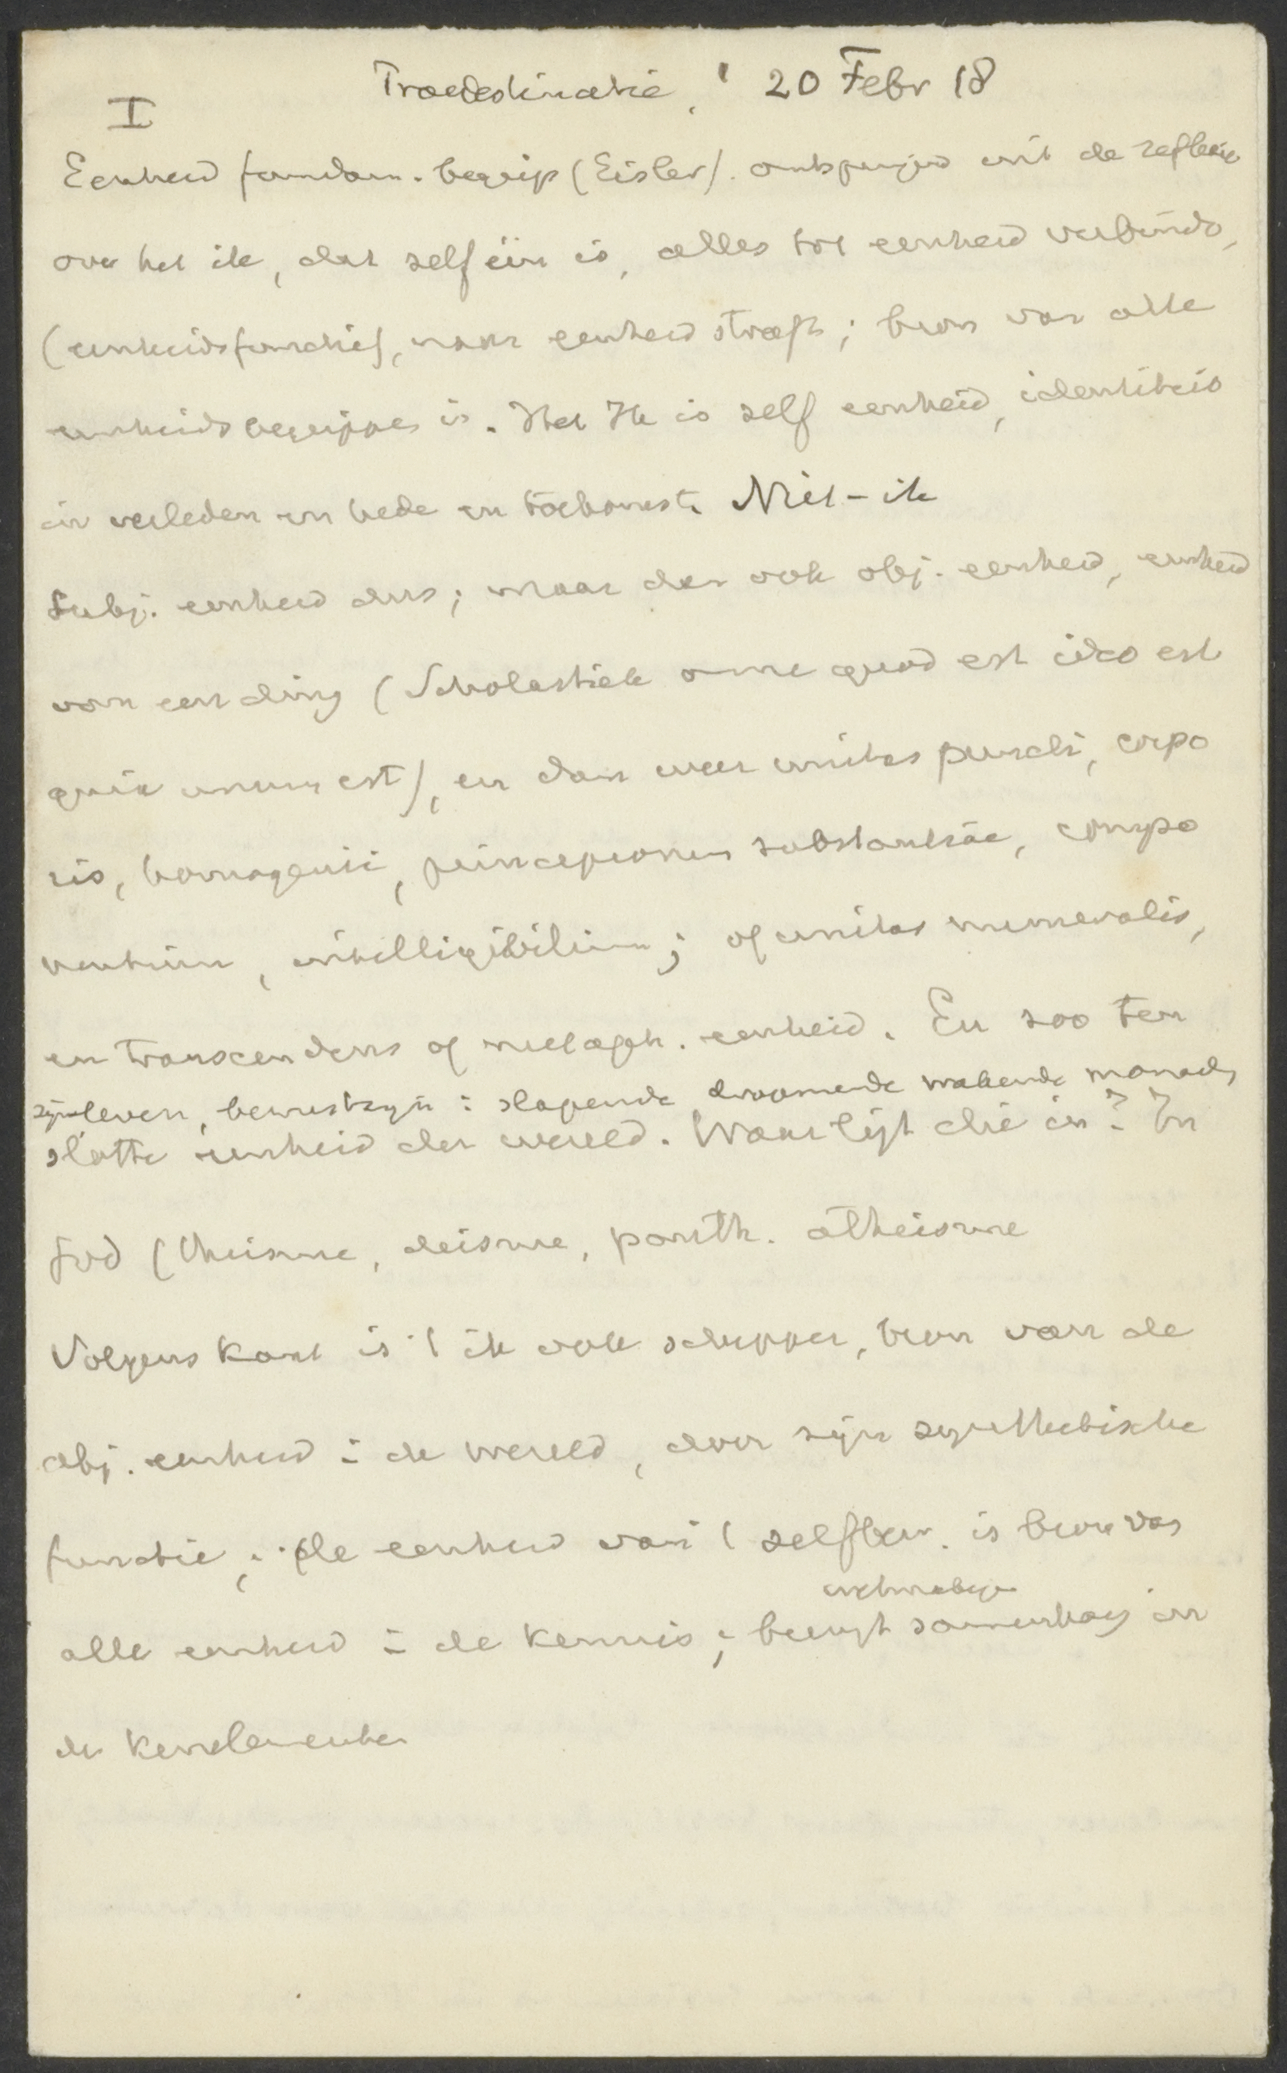 Praedestinatie. 20 Febr 18
I
Eenheid fundam. begrip (Eisler). ontspringt uit de reflexie
over het ik, dat zelf één is, alles tot eenheid verbindt,
(eenheidsfunctie), naar eenheid streeft; bron van alle
eenheidsbegrippen is. Het Ik is zelf eenheid, identiteit
in verleden en heden en toekomst. Niet-ik
Subj. eenheid dus; maar dan ook obj. eenheid, eenheid
van een ding (Scholastiek omne quod est ideo est
quia unum est), en dan weer unitas puncti, corpo
ris, homogenii, substantiae, compo
nentium, intelligibilium; of unitas numeralis,
en transcendens of metaph. eenheid. En zoo ten
zijn leven, bewustzijn: slapende droomende wakende monads
slotte eenheid der wereld. Waar ligt die in? In
God (theisme, deisme, panth. atheisme
Volgens Kant is 't ik ook schepper, bron van de
obj. eenheid i. de wereld, door zijn synthetische
functie; de eenheid van 't zelfbew. is bron van
alle eenheid i. de kennis; brengt samenhang in
de kenelementen